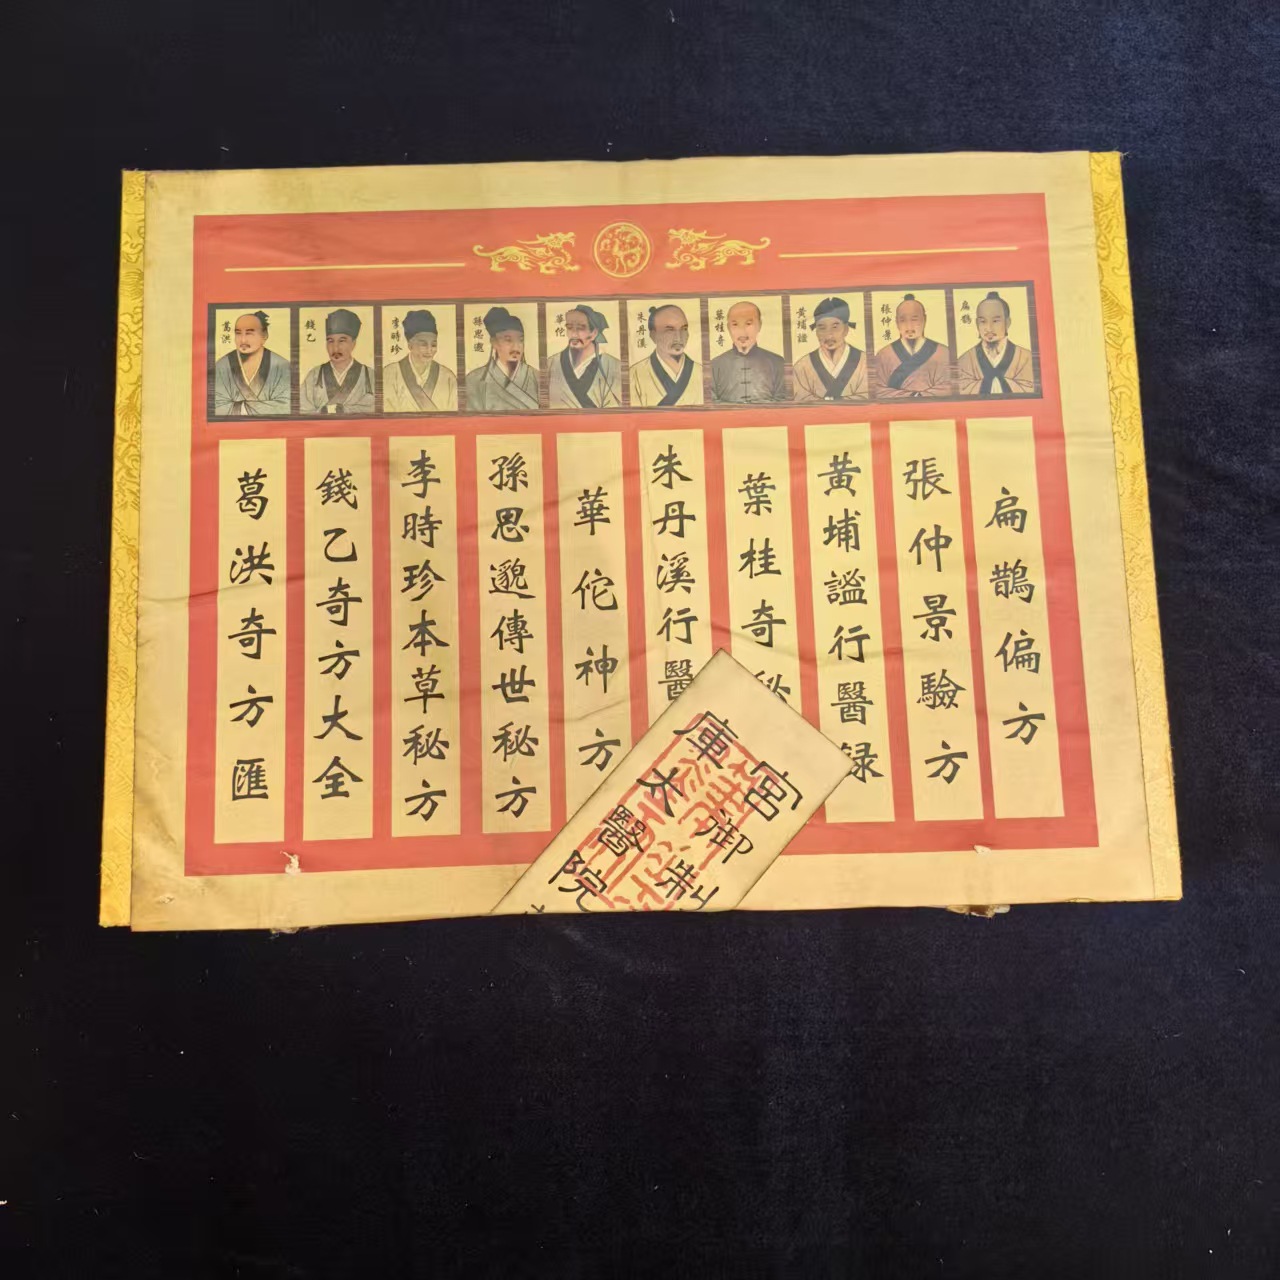 扁鵲
張仲景
黃埔謐
葉桂奇
朱丹溪
華佗
孫思邈
李時珍
錢乙
葛洪
扁鵲偏方
張仲景驗方
黃埔謐行醫録
葉桂奇秘
朱丹溪行醫
華佗神方
孫思邈傳世秘方
李時珍本草秘方
錢乙奇方大全
葛洪奇方匯
宮御制
庫太醫院